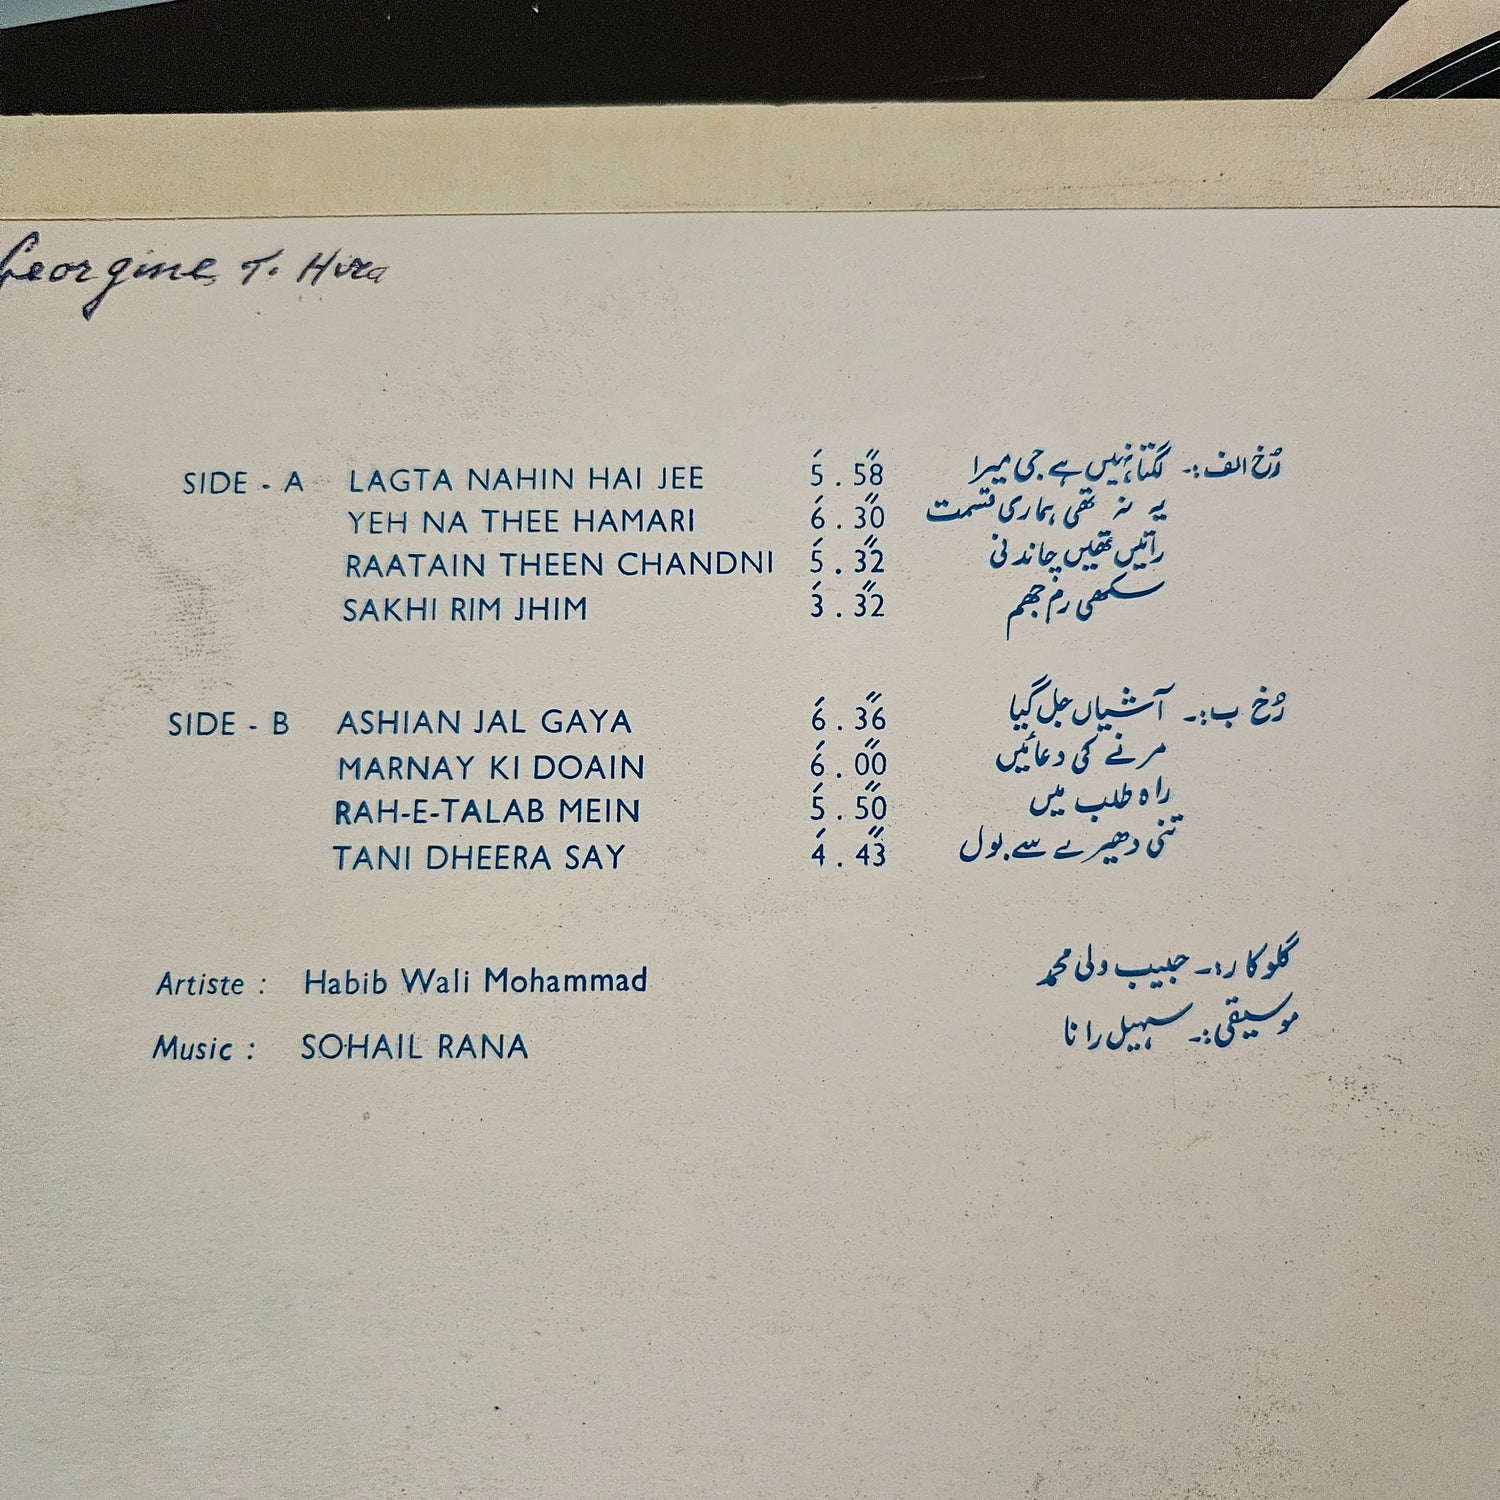 Georgine T. Hira
SIDE - A LAGTA NAHIN HAI JEE 5́ . 58̋ رُخ الف:۔ لگتا نہیں ہے جی میرا
YEH NA THEE HAMARI 6́ . 30̋ یہ نہ تھی ہماری قسمت
RAATAIN THEEN CHANDNI 5́ . 32̋ راتیں تھیں چاندنی
SAKHI RIM JHIM 3́ . 32̋ سکھی رم جھم
SIDE - B ASHIAN JAL GAYA 6́ . 36̋ رُخ ب:۔ آشیاں جل گیا
MARNAY KI DOAIN 6́ . 00̋ مرنے کی دعائیں
RAH-E-TALAB MEIN 5́ . 50̋ راہ طلب میں
TANI DHEERA SAY 4́ . 43̋ تنی دھیرے سے بول
Artiste : Habib Wali Mohammad گلوکار:۔ حبیب ولی محمد
Music : SOHAIL RANA موسیقی:۔ سہیل رانا